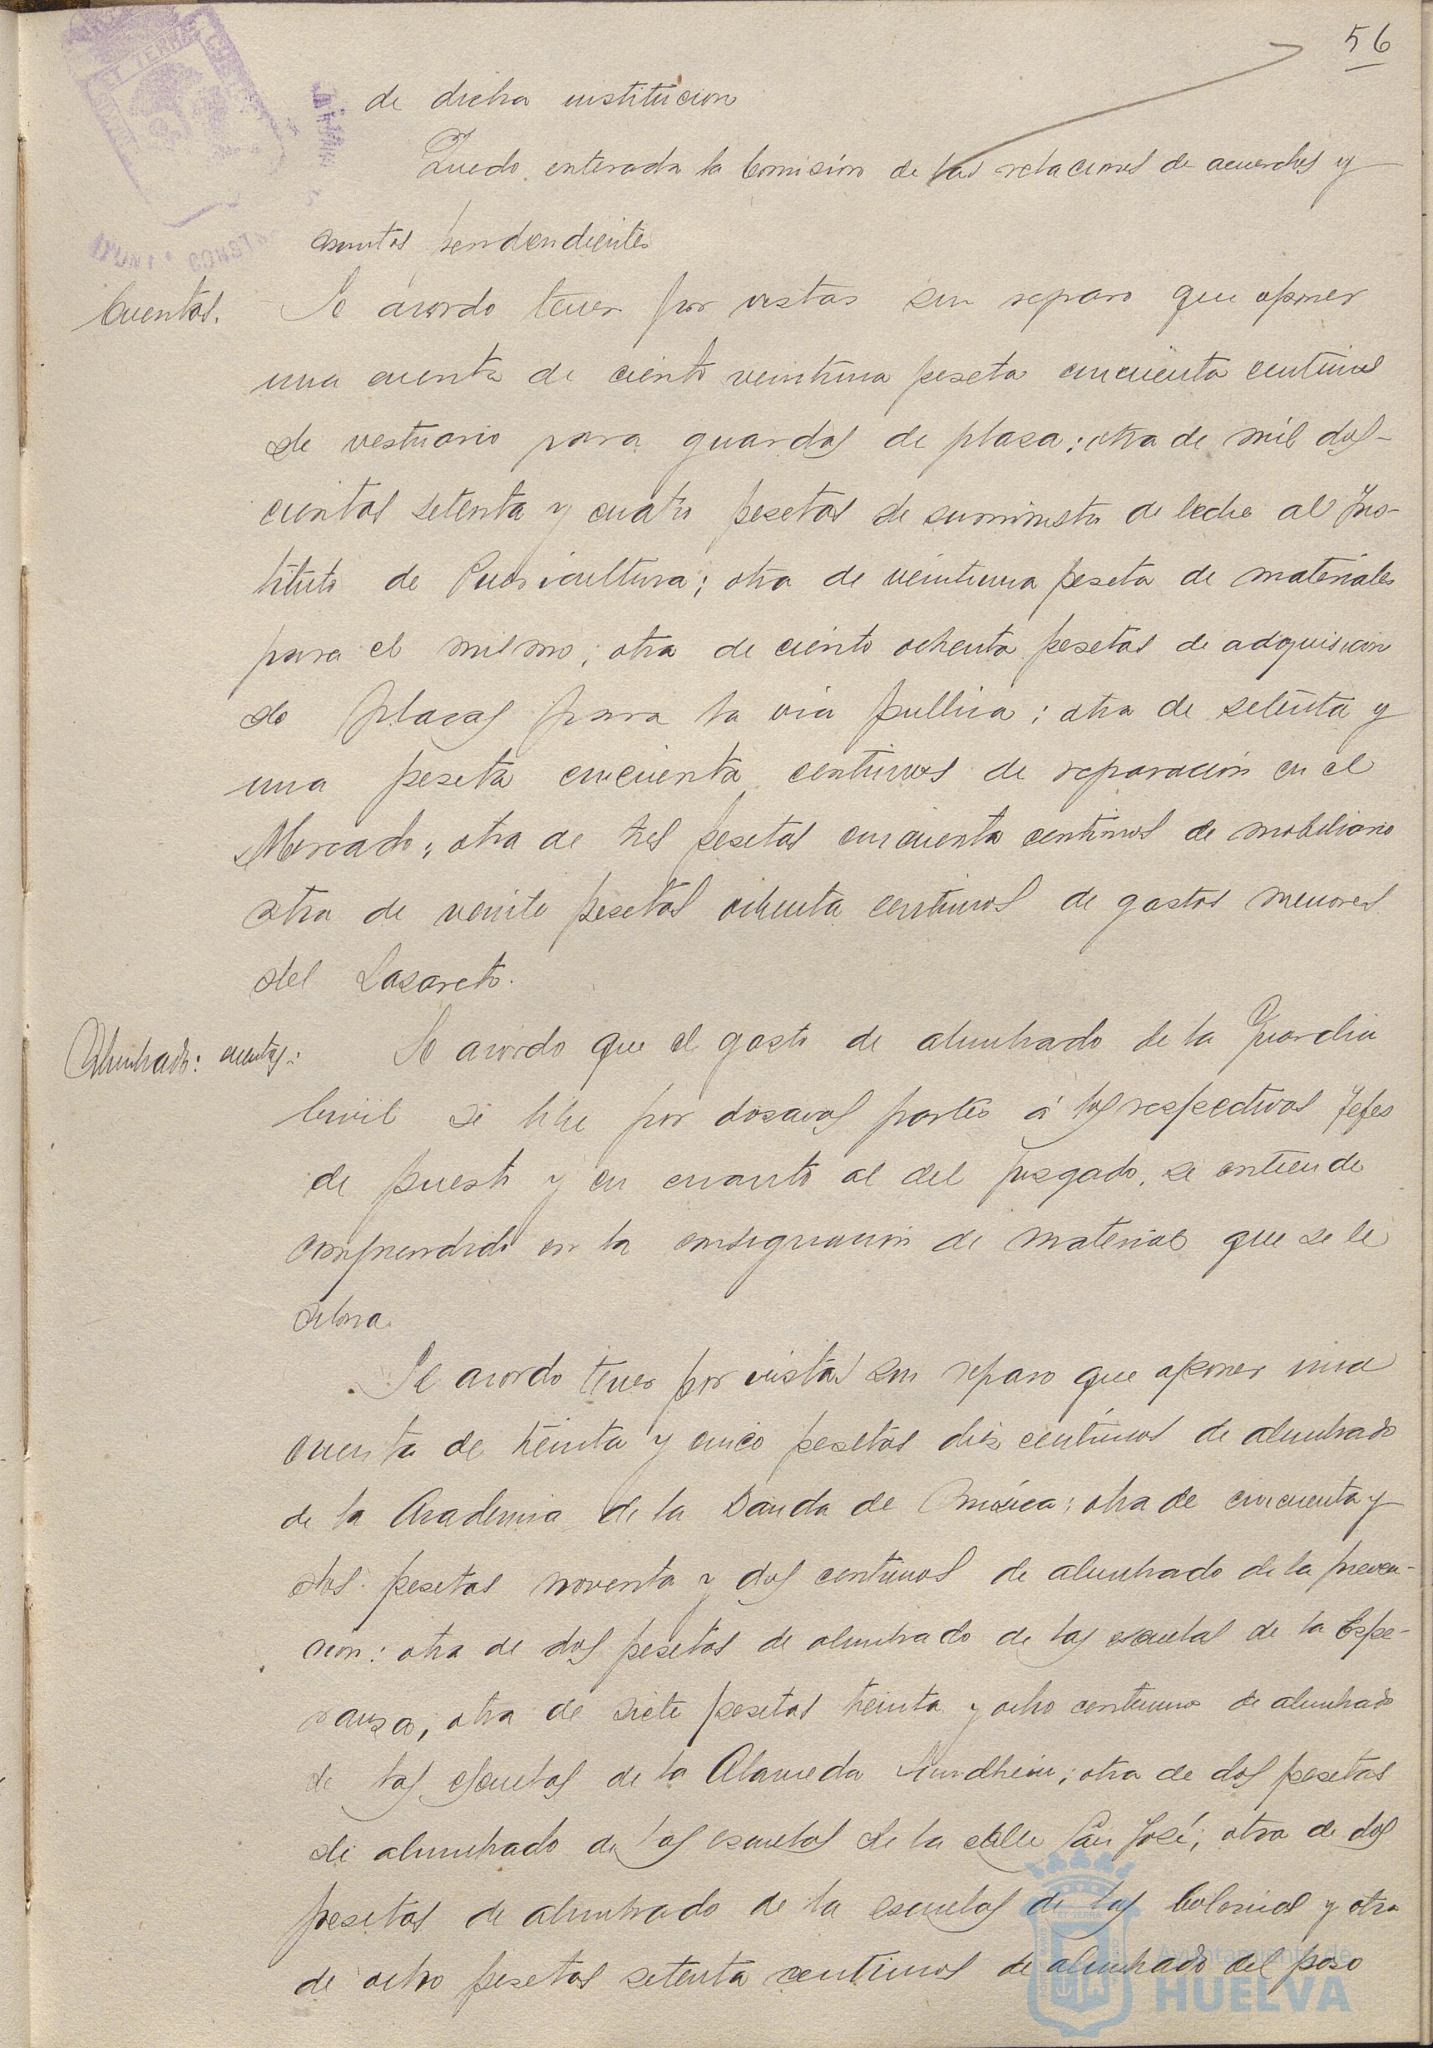 56
de dicha institucion
Quedo enterada la Comisión de las relaciones de acuerdos y
asuntos pendendientes
Cuentas. Se acordo tener por vistas sin reparo que oponer
una cuenta de ciento veintiuna peseta cincuenta centimos
de vestuario para guardas de plaza; otra de mil dos-
cientas setenta y cuatro pesetas de suministro de leche al Ins-
tituto de Puericultura; otra de veintiuna peseta de materiales
para el mismo; otra de ciento ochenta pesetas de adquisicion
de placas para la via publica; otra de setenta y
una peseta cincuenta centimos de reparación en el
Mercado; otra de tres pesetas cincuenta centimos de mobiliario
otra de veinte pesetas ochenta centimos de gastos menores
del Lazareto.
Alumbrado: cuentas: Se acordo que el gasto de alumbrado de la Guardia
Civil se libre por dozavas partes á los respectivos Jefes
de puesto y en cuanto al del juzgado, se entiende
comprendido en la consignacion de material que se le
abona.
Se acordo tener por vistas sin reparo que oponer una
cuenta de treinta y cinco pesetas diez centimos de alumbrado
de la Academia de la Banda de Música; otra de cincuenta y
dos pesetas noventa y dos centimos de alumbrado de la preven-
cion; otra de dos pesetas de alumbrado de las escuelas de la Espe-
ranza; otra de siete pesetas treinta y ocho centimos de alumbrado
de las escuelas de la Alameda Sundheim; otra de dos pesetas
de alumbrado de las escuelas de la calle San José; otra de dos
pesetas de alumbrado de la escuelas de las Colonias y otra
de ocho pesetas setenta centimos de alumbrado del pozo
Ayuntamiento de
HUELVA